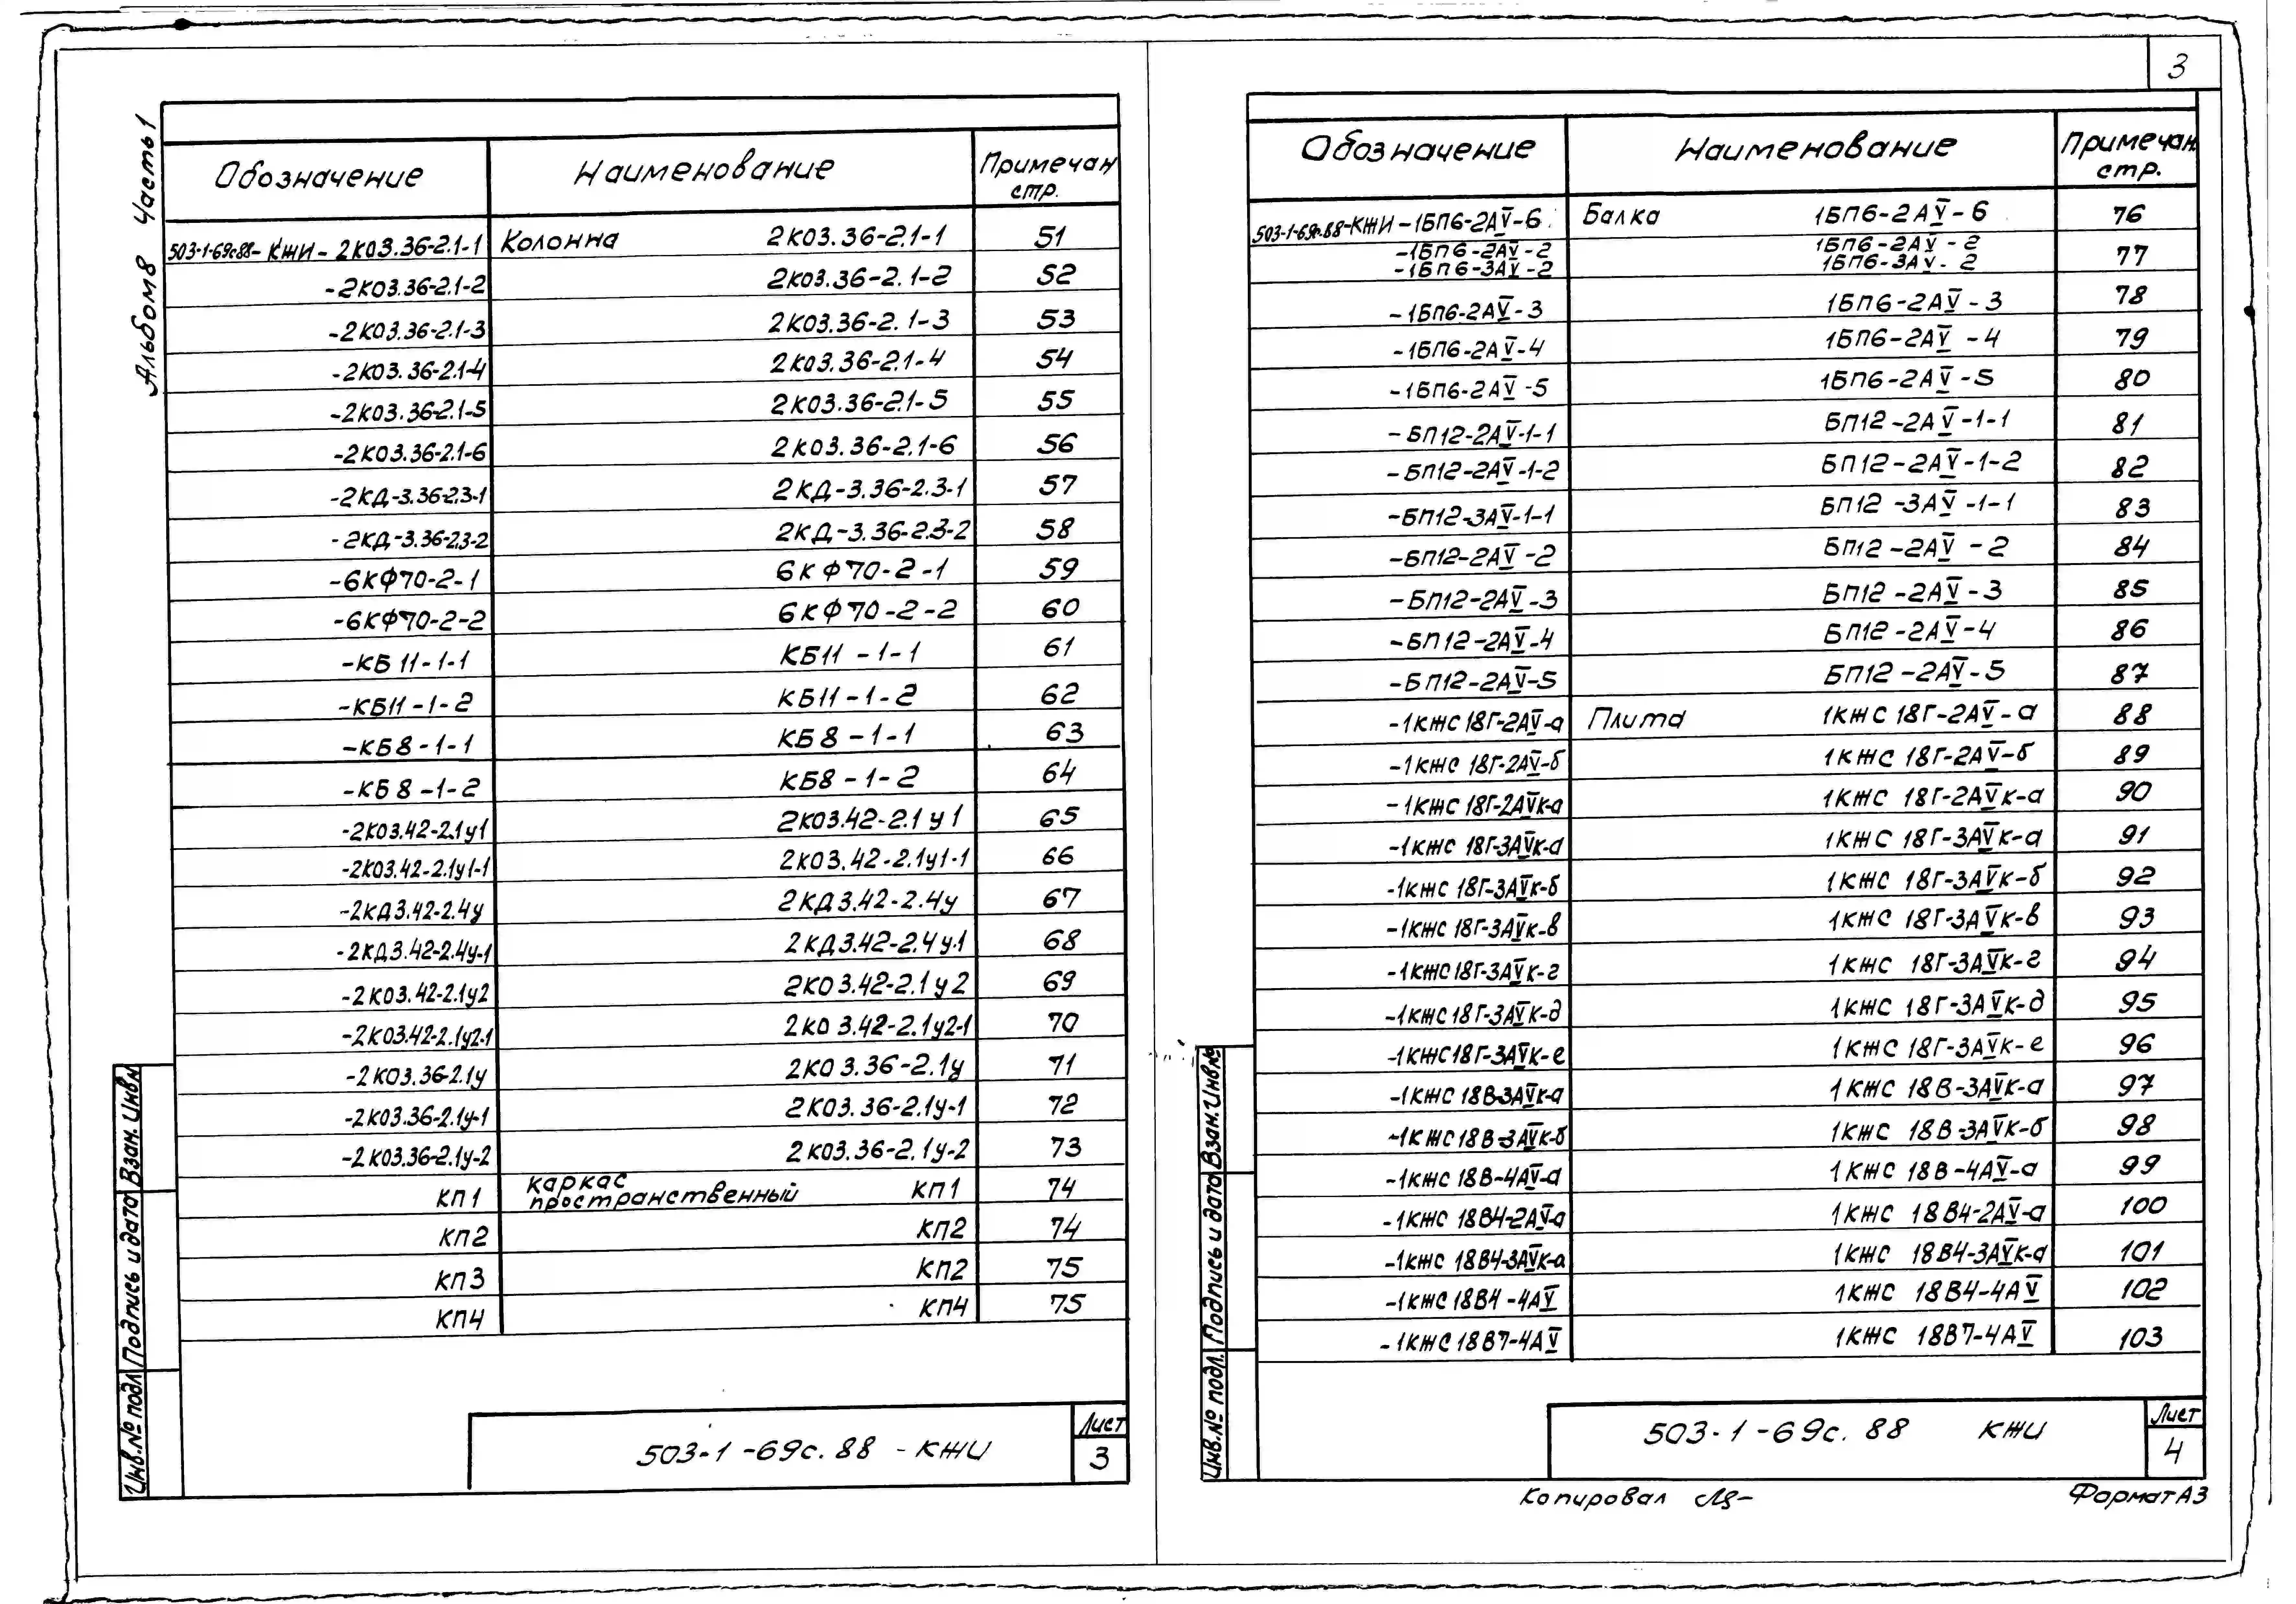 3
Альбом 8 Часть 1
Обозначение Наименование Примечан стр.
503-1-69с.88-КЖИ-2К03.36-2.1-1 Колонна 2К03.36-2.1-1 51
-2К03.36-2.1-2 2К03.36-2.1-2 52
-2К03.36-2.1-3 2К03.36-2.1-3 53
-2К03.36-2.1-4 2К03.36-2.1-4 54
-2К03.36-2.1-5 2К03.36-2.1-5 55
-2К03.36-2.1-6 2К03.36-2.1-6 56
-2КД-3.36-2.3-1 2КД-3.36-2.3-1 57
-2КД-3.36-2.3-2 2КД-3.36-2.3-2 58
-6КФ70-2-1 6КФ70-2-1 59
-6КФ70-2-2 6КФ70-2-2 60
-КБ11-1-1 КБ11-1-1 61
-КБ11-1-2 КБ11-1-2 62
-КБ8-1-1 КБ8-1-1 63
-КБ8-1-2 КБ8-1-2 64
-2К03.42-2.1у1 2К03.42-2.1у1 65
-2К03.42-2.1у1-1 2К03.42-2.1у1-1 66
-2КД3.42-2.4у 2КД3.42-2.4у 67
-2КД3.42-2.4у-1 2КД3.42-2.4у-1 68
-2К03.42-2.1у2 2К03.42-2.1у2 69
-2К03.42-2.1у2-1 2К03.42-2.1у2-1 70
-2К03.36-2.1у 2К03.36-2.1у 71
-2К03.36-2.1у-1 2К03.36-2.1у-1 72
-2К03.36-2.1у-2 2К03.36-2.1у-2 73
КП1 каркас пространственный КП1 74
КП2 КП2 74
КП3 КП2 75
КП4 КП4 75
503-1-69с.88-КЖИ
Лист
3
Инв.№ подл. Подпись и дата Взам. Инв.№
Обозначение Наименование Примечан. стр.
503-1-69с.88-КЖИ-1БП6-2АV-6 Балка 1БП6-2АV-6 76
-1БП6-2АV-2 1БП6-2АV-2 77
-1БП6-3АV-2 1БП6-3АV-2
-1БП6-2АV-3 1БП6-2АV-3 78
-1БП6-2АV-4 1БП6-2АV-4 79
-1БП6-2АV-5 1БП6-2АV-5 80
-БП12-2АV-1-1 БП12-2АV-1-1 81
-БП12-2АV-1-2 БП12-2АV-1-2 82
-БП12-3АV-1-1 БП12-3АV-1-1 83
-БП12-2АV-2 БП12-2АV-2 84
-БП12-2АV-3 БП12-2АV-3 85
-БП12-2АV-4 БП12-2АV-4 86
-БП12-2АV-5 БП12-2АV-5 87
-1КЖС18Г-2АV-а Плита 1КЖС18Г-2АV-а 88
-1КЖС 18Г-2АV-б 1КЖС 18Г-2АV-б 89
-1КЖС 18Г-2АVК-а 1КЖС 18Г-2АVК-а 90
-1КЖС 18Г-3АVК-а 1КЖС 18Г-3АVК-а 91
-1КЖС 18Г-3АVК-б 1КЖС 18Г-3АVК-б 92
-1КЖС 18Г-3АVК-в 1КЖС 18Г-3АVК-в 93
-1КЖС18Г-3АVК-г 1КЖС 18Г-3АVК-г 94
-1КЖС18Г-3АVК-д 1КЖС 18Г-3АVК-д 95
-1КЖС18Г-3АVК-е 1КЖС 18Г-3АVК-е 96
-1КЖС 18В-3АVК-а 1КЖС 18В-3АVК-а 97
-1КЖС18В-3АVК-б 1КЖС 18В-3АVК-б 98
-1КЖС 18В-4АV-а 1КЖС 18В-4АV-а 99
-1КЖС 18В4-2АV-а 1КЖС 18В4-2АV-а 100
-1КЖС 18В4-3АVК-а 1КЖС 18В4-3АVК-а 101
-1КЖС18В4-4АV 1КЖС 18В4-4АV 102
-1КЖС18В7-4АV 1КЖС 18В7-4АV 103
503-1-69с.88 КЖИ
Лист
4
Инв.№ подл. Подпись и дата Взам. Инв.№
Копировал
Формат А3